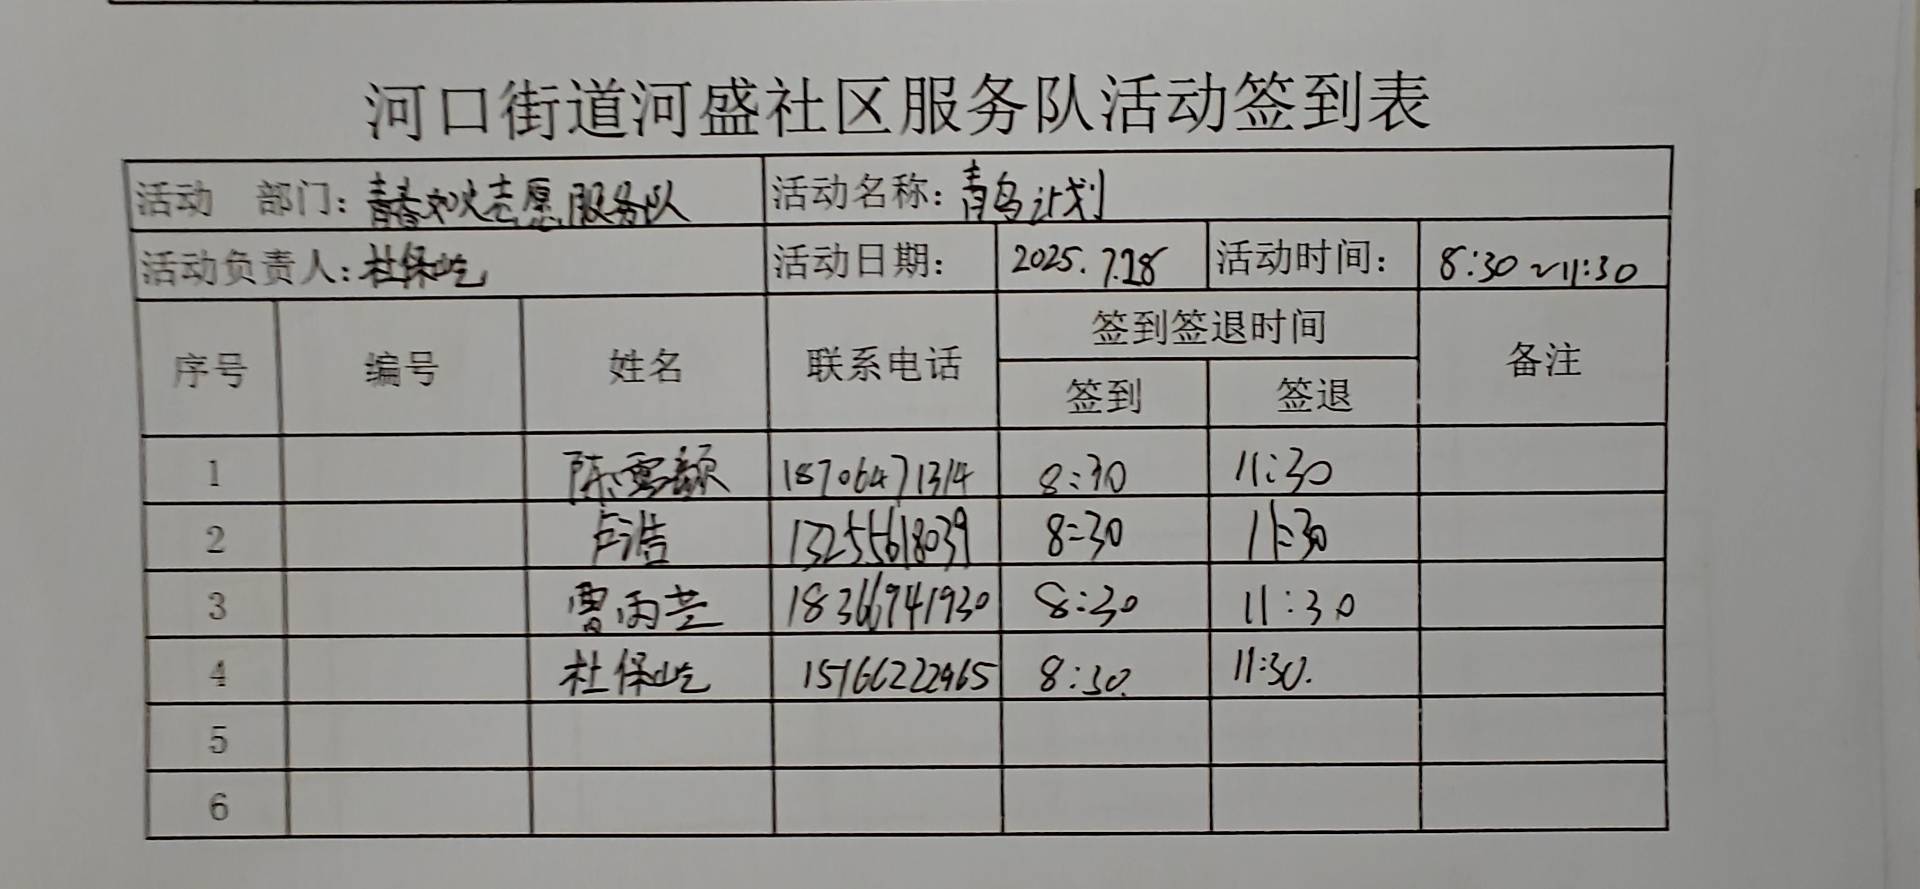 河口街道河盛社区服务队活动签到表
活动 部门：青春如火志愿服务队 活动名称：青鸟计划
活动负责人：杜保屹 活动日期： 2025.7.28 活动时间： 8:30~11:30
序号 编号 姓名 联系电话 签到签退时间 备注
签到 签退
1 陈雪颖 18706471314 8:30 11:30
2 卢浩 13255618039 8:30 11:30
3 曹雨芸 18366941930 8:30 11:30
4 杜保屹 15166222965 8:30. 11:30.
5
6